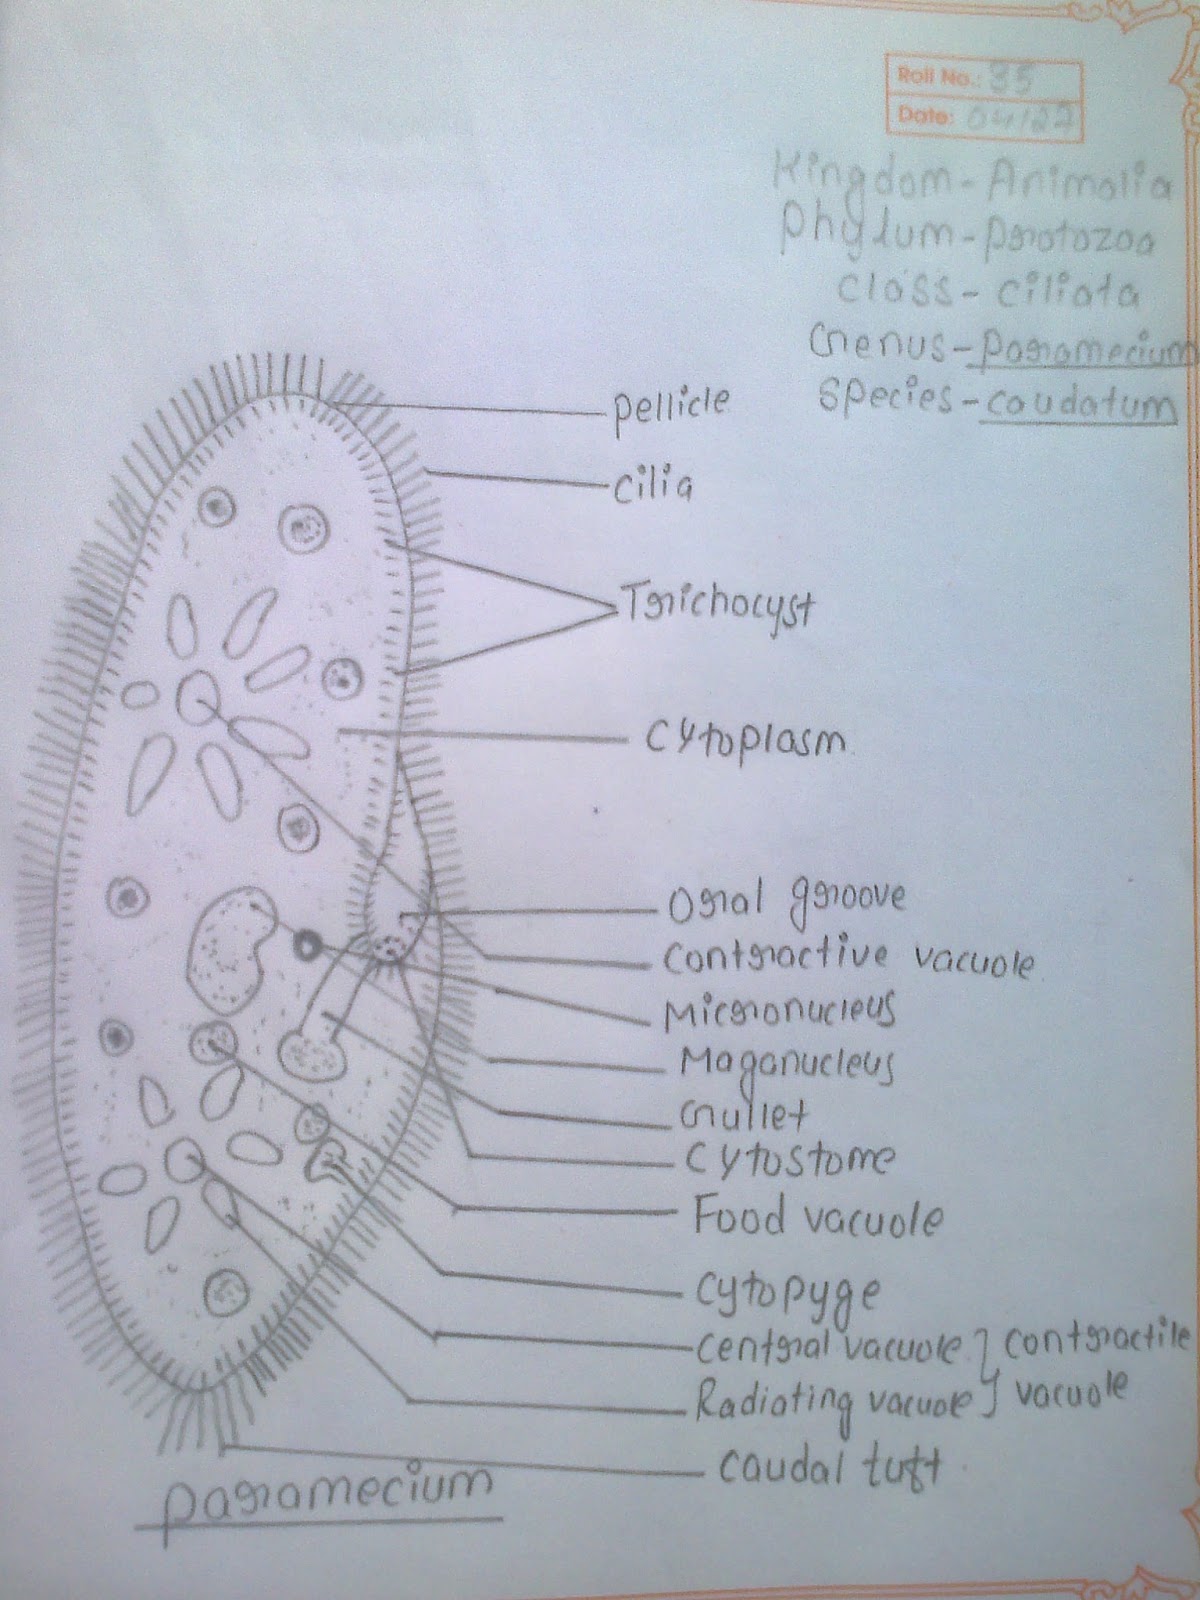 Roll No.: 35
Date: 04/22
Kingdom - Animalia
Phylum - Protozoa
Class - Ciliata
Genus - Paramecium
Species - caudatum
Pellicle
Cilia
Trichocyst
Cytoplasm
Oral groove
Contractive vacuole
Micronucleus
Maganucleus
Gullet
Cytostome
Food vacuole
Cytopyge
Central vacuole } contractile
Radiating vacuole } vacuole
Caudal tuft
Paramecium